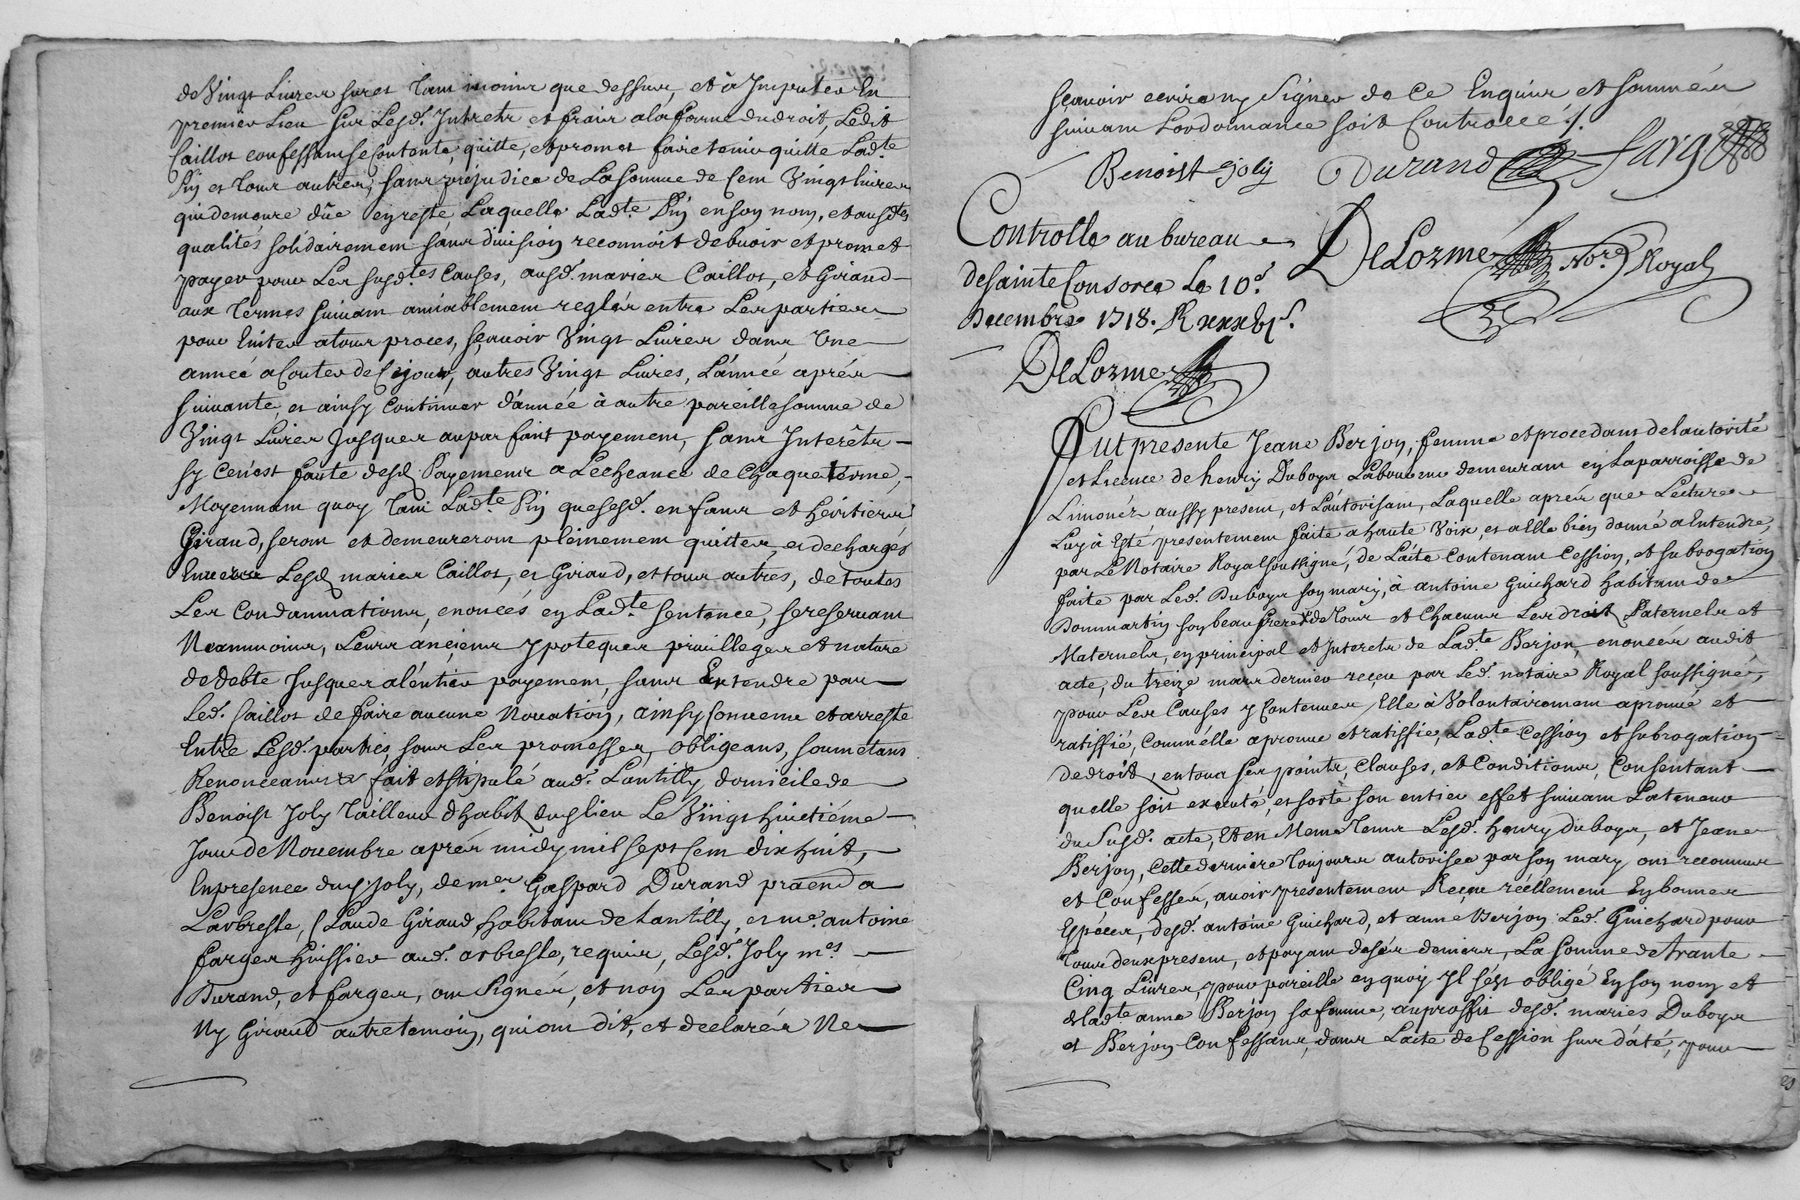 de Vingt Livres sur et tant moins que dessus, et à Imputer En
premier Lieu sur Lesd. Intretz et fraix a la forme du droit, Ledit
Caillot confessant se Contente, quitte, et promet faire tenir quitte Ladte
Pin et tous autres, sans prejudice de La somme de Cent Vingt livres
qui demeure dûe en reste Laquelle Ladte Pin en son nom, et ausdtes
qualités solidairement sans division reconnoit debvoir et promet
payer pour Les susdtes Causes, ausd. mariés Caillot, et Giraud
aux termes suivant amiablement reglés entre Les parties
pour Eviter a tous proces, sçavoir Vingt Livres dans Une
année a Conter de Ce jour, autres Vingt Livres, L'année aprés
suivante, et ainsy continuer d'année à autre pareille somme de
Vingt Livres Jusques au parfait payement, sans Interêtz
sy Ce n'est faute desd. Payements a L'echeance de Chaque terme,
Moyennant quoy tant Ladte Pin que sesd. enfans et héritiers
Giraud, seront et demeureront pleinement quittes, et dechargés
Envers Lesd. mariés Caillot, et Giraud, et tous autres, de toutes
Les Condamnations, enoncés en Ladte sentence, se reservant
Neanmoins, Leurs anciens ypoteques privilleges et nature
de debte Jusques a l'éntier payement, sans Entendre par
Led. Caillot de faire aucune Novation, ainsy Convenu et arresté
Entre Lesd. parties, sous Les promesses, obligeans, soumetans
Renonceans &a fait et stipulé aud. Lantilly domicile de
Benoist Joly Tailleur d'habit dud. lieu Le Vingt huictiéme
Jour de Novembre aprés midy mil sept cent dix huit,
En presence dud. Joly, de mer. Gaspard Durand praend a
Larbresle, Claude Giraud habitant de Lantilly, et me. antoine
farges huissier aud. arbresle, requis, Lesd. Joly mes.
Durand, et farges, ont signés, et non Les parties
Ny Giraud autre temoin, qui ont dit, et declarés Ne
sçavoir ecrire ny signer de Ce Enquis et sommés
suivant Lordonnance soit Controllé ./.
Benoist Joly Durand farges
Controllé au bureau
de Sainte Consorce Le 10e.
Decembre 1718. R xxxbis.
DeLorme Nore Royal
DeLorme
Fut presente Jeane Berjon, femme et procedant de l'autorité
et licence de henry Duboys Laboureur demeurant en La parroisse de
Limonés aussy present, et L'autorisant, Laquelle aprés que Lecture
Luy à Esté presentement faite a haute Voix, et a Elle bien donné a Entendre,
par Le Notaire Royal soussigné, de L'acte contenant Cession, et subrogation
faite par Led. Duboys son mary, à antoine Guichard habitant de
Dommartin son beaufrere de tous et Chacuns Les droits Paternels et
Maternels, en principal et Interets de Ladte Berjon, enoncés audit
acte, du treize mars dernier reçeu par Led. notaire Royal soussigné,
pour Les Causes y Contenues, Elle à Volontairement aprouvé et
ratiffié, Comm'elle aprouve et ratiffie, Ladte Cession et subrogation
de droit, en tous ses points, Clauses, et Conditions, Consentant
quelle soit executé, et sorte son entier effet suivant La teneur
du susd. acte, Et en Meme tems Lesd. henry duboys, et Jeane
Berjon, Cette derniere toujours autorisée par son mary ont reconnus
et Confessés, avoir presentement Reçeu réellement En bonnes
Espéces, desd. antoine Guichard, et anne Berjon Led. Guichard pour
tous deux present, et payant de ses deniers, La somme de trante
Cinq Livres, pour pareille en quoy Il s'est obligé En son nom et
de Ladte anne Berjon sa femme, au proffit desd. mariés Duboys
et Berjon Confessans, dans L'acte de Cession sus daté, pour